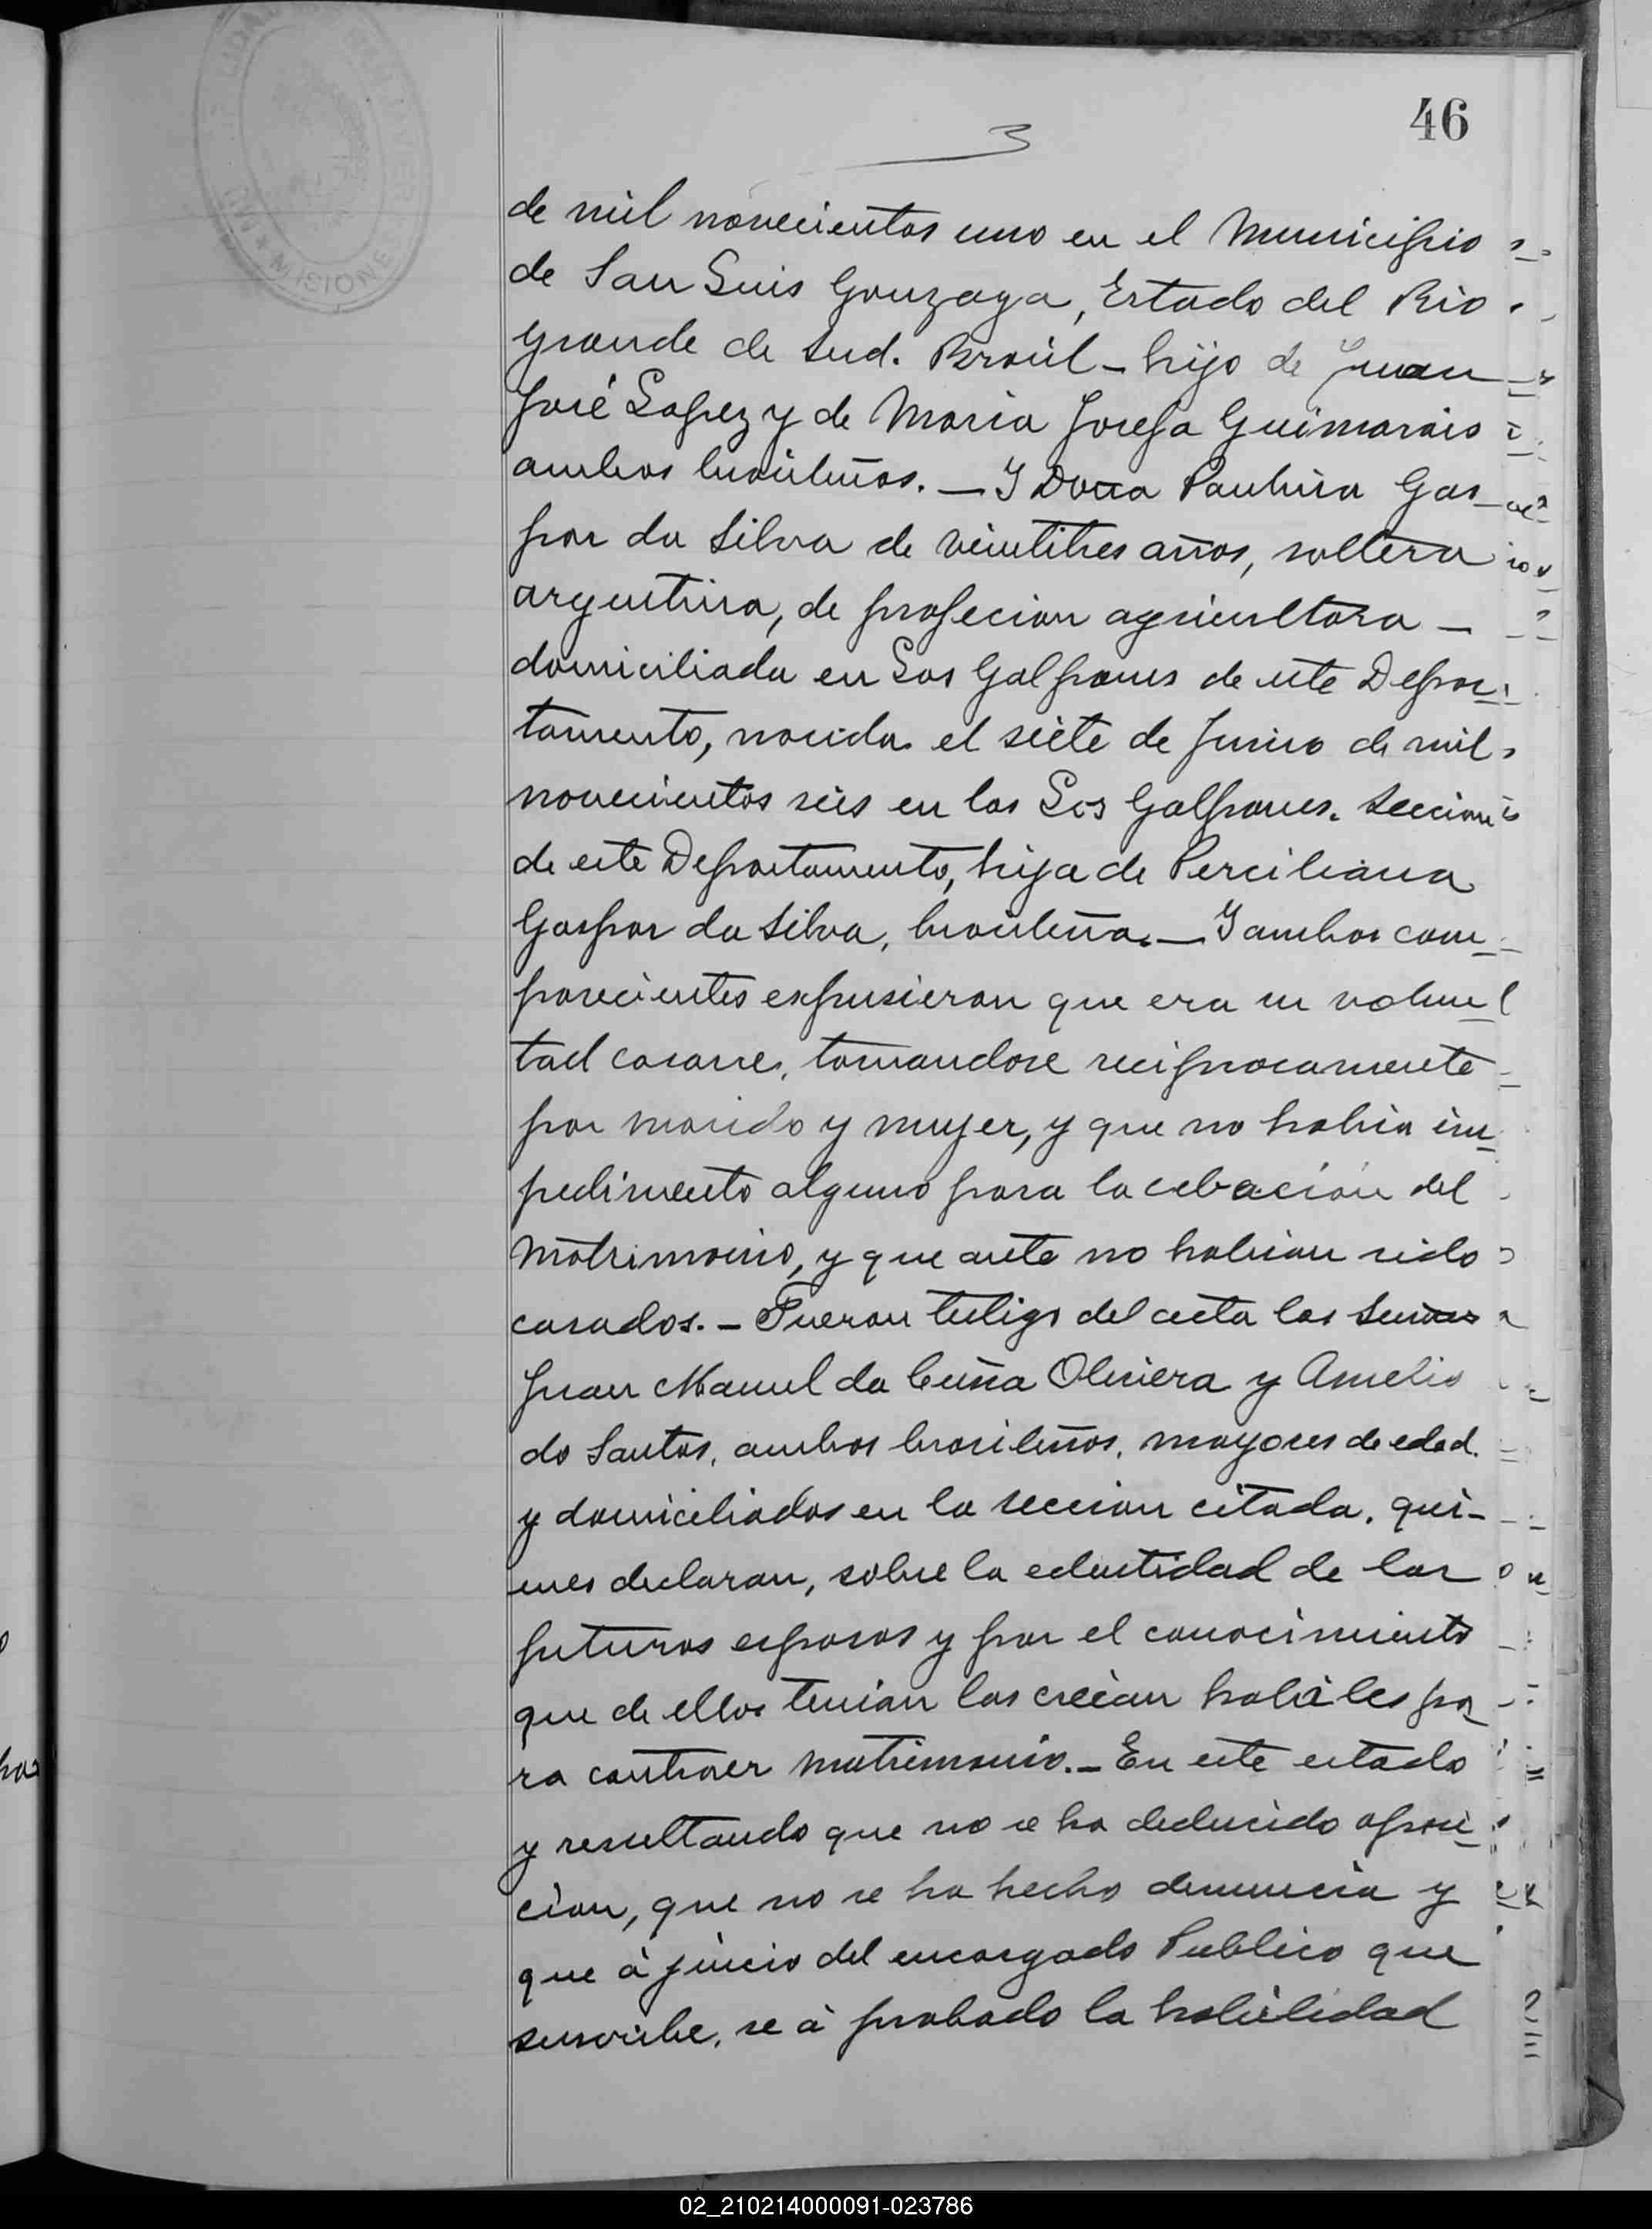 46
3
de mil novecientos uno en el Municipio
de San Luis Gonzaga, Estado del Rio
grande de Sud. Brasil - hijo de Juan
José Lopez y de Maria Josefa Guimarais
ambos brasileños. - Y Doña Paulina Gas-
par da Silva de veintitres años, soltera
argentina, de profecion agricultora -
domiciliada en Los Galpones de este Depar-
tamento, nacida el siete de Junio de mil
novecientos seis en los Los Galpones. Seccion
de este Departamento, hija de Perciliana
Gaspar da Silva, brasileña. - Y ambos com-
parecientes expusieron que era su volun-
tad casarse, tomandose reciprocamente
por marido y mujer, y que no habia im-
pedimento alguno para la cebacion del
Matrimonio, y que ante no habian sido
casados. - Fueron del acta los
Juan Manuel da Cuña Oliviera y Amelio
do Santos, ambos brasileños, mayores de edad.
y domiciliados en la seccion citada, qui-
enes declaran, sobre la edentidad de los
futuros esposos y por el conocimiento
que de ellos tenian los creian habiles pa-
ra contraer matrimonio. - En este estado
y resultando que no se ha deducido oposi-
cion, que no se ha hecho denuncia y
que á juicio del encargado Publico que
suscribe, se á probado la habilidad
MISIONE
02_210214000091-023786